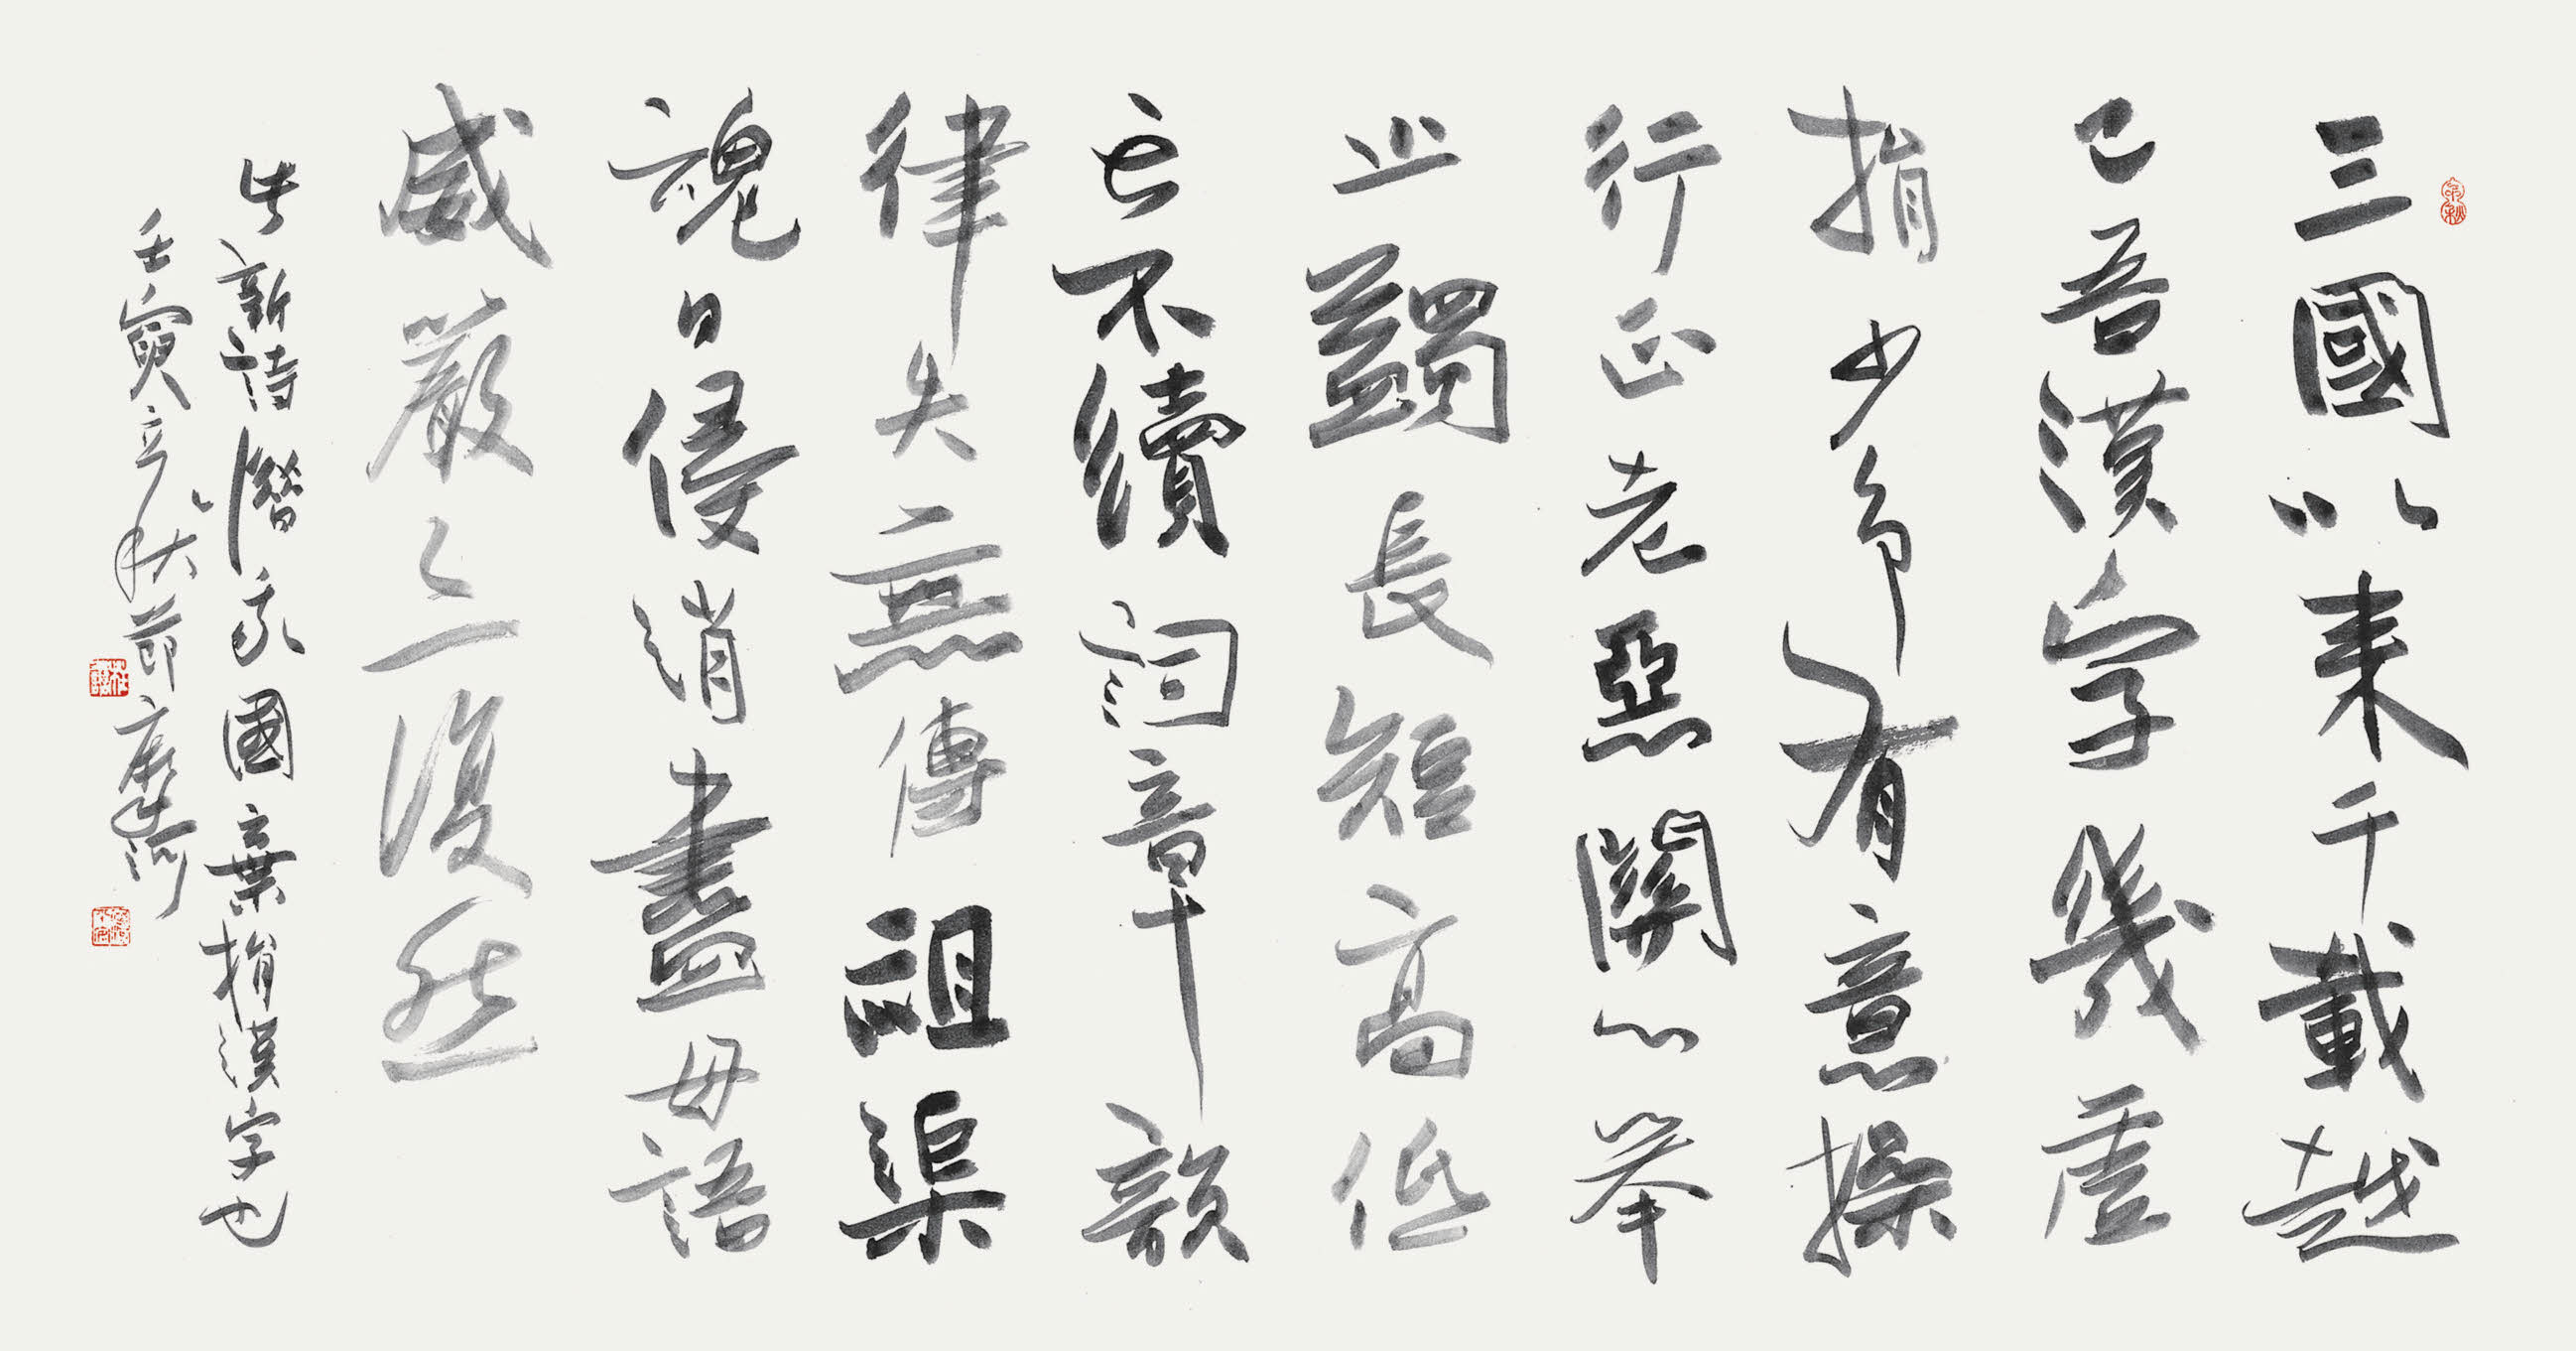 三國以來千載越
已吾漢字幾虛
捐少有意操
行正老惡關心舉
止蠲長短高低
亡不續詞章韻
律失無傳詛渠
魂日侵消盡母語
威嚴復然
此新詩我國棄捐漢字也
壬寅立秋節摩訶